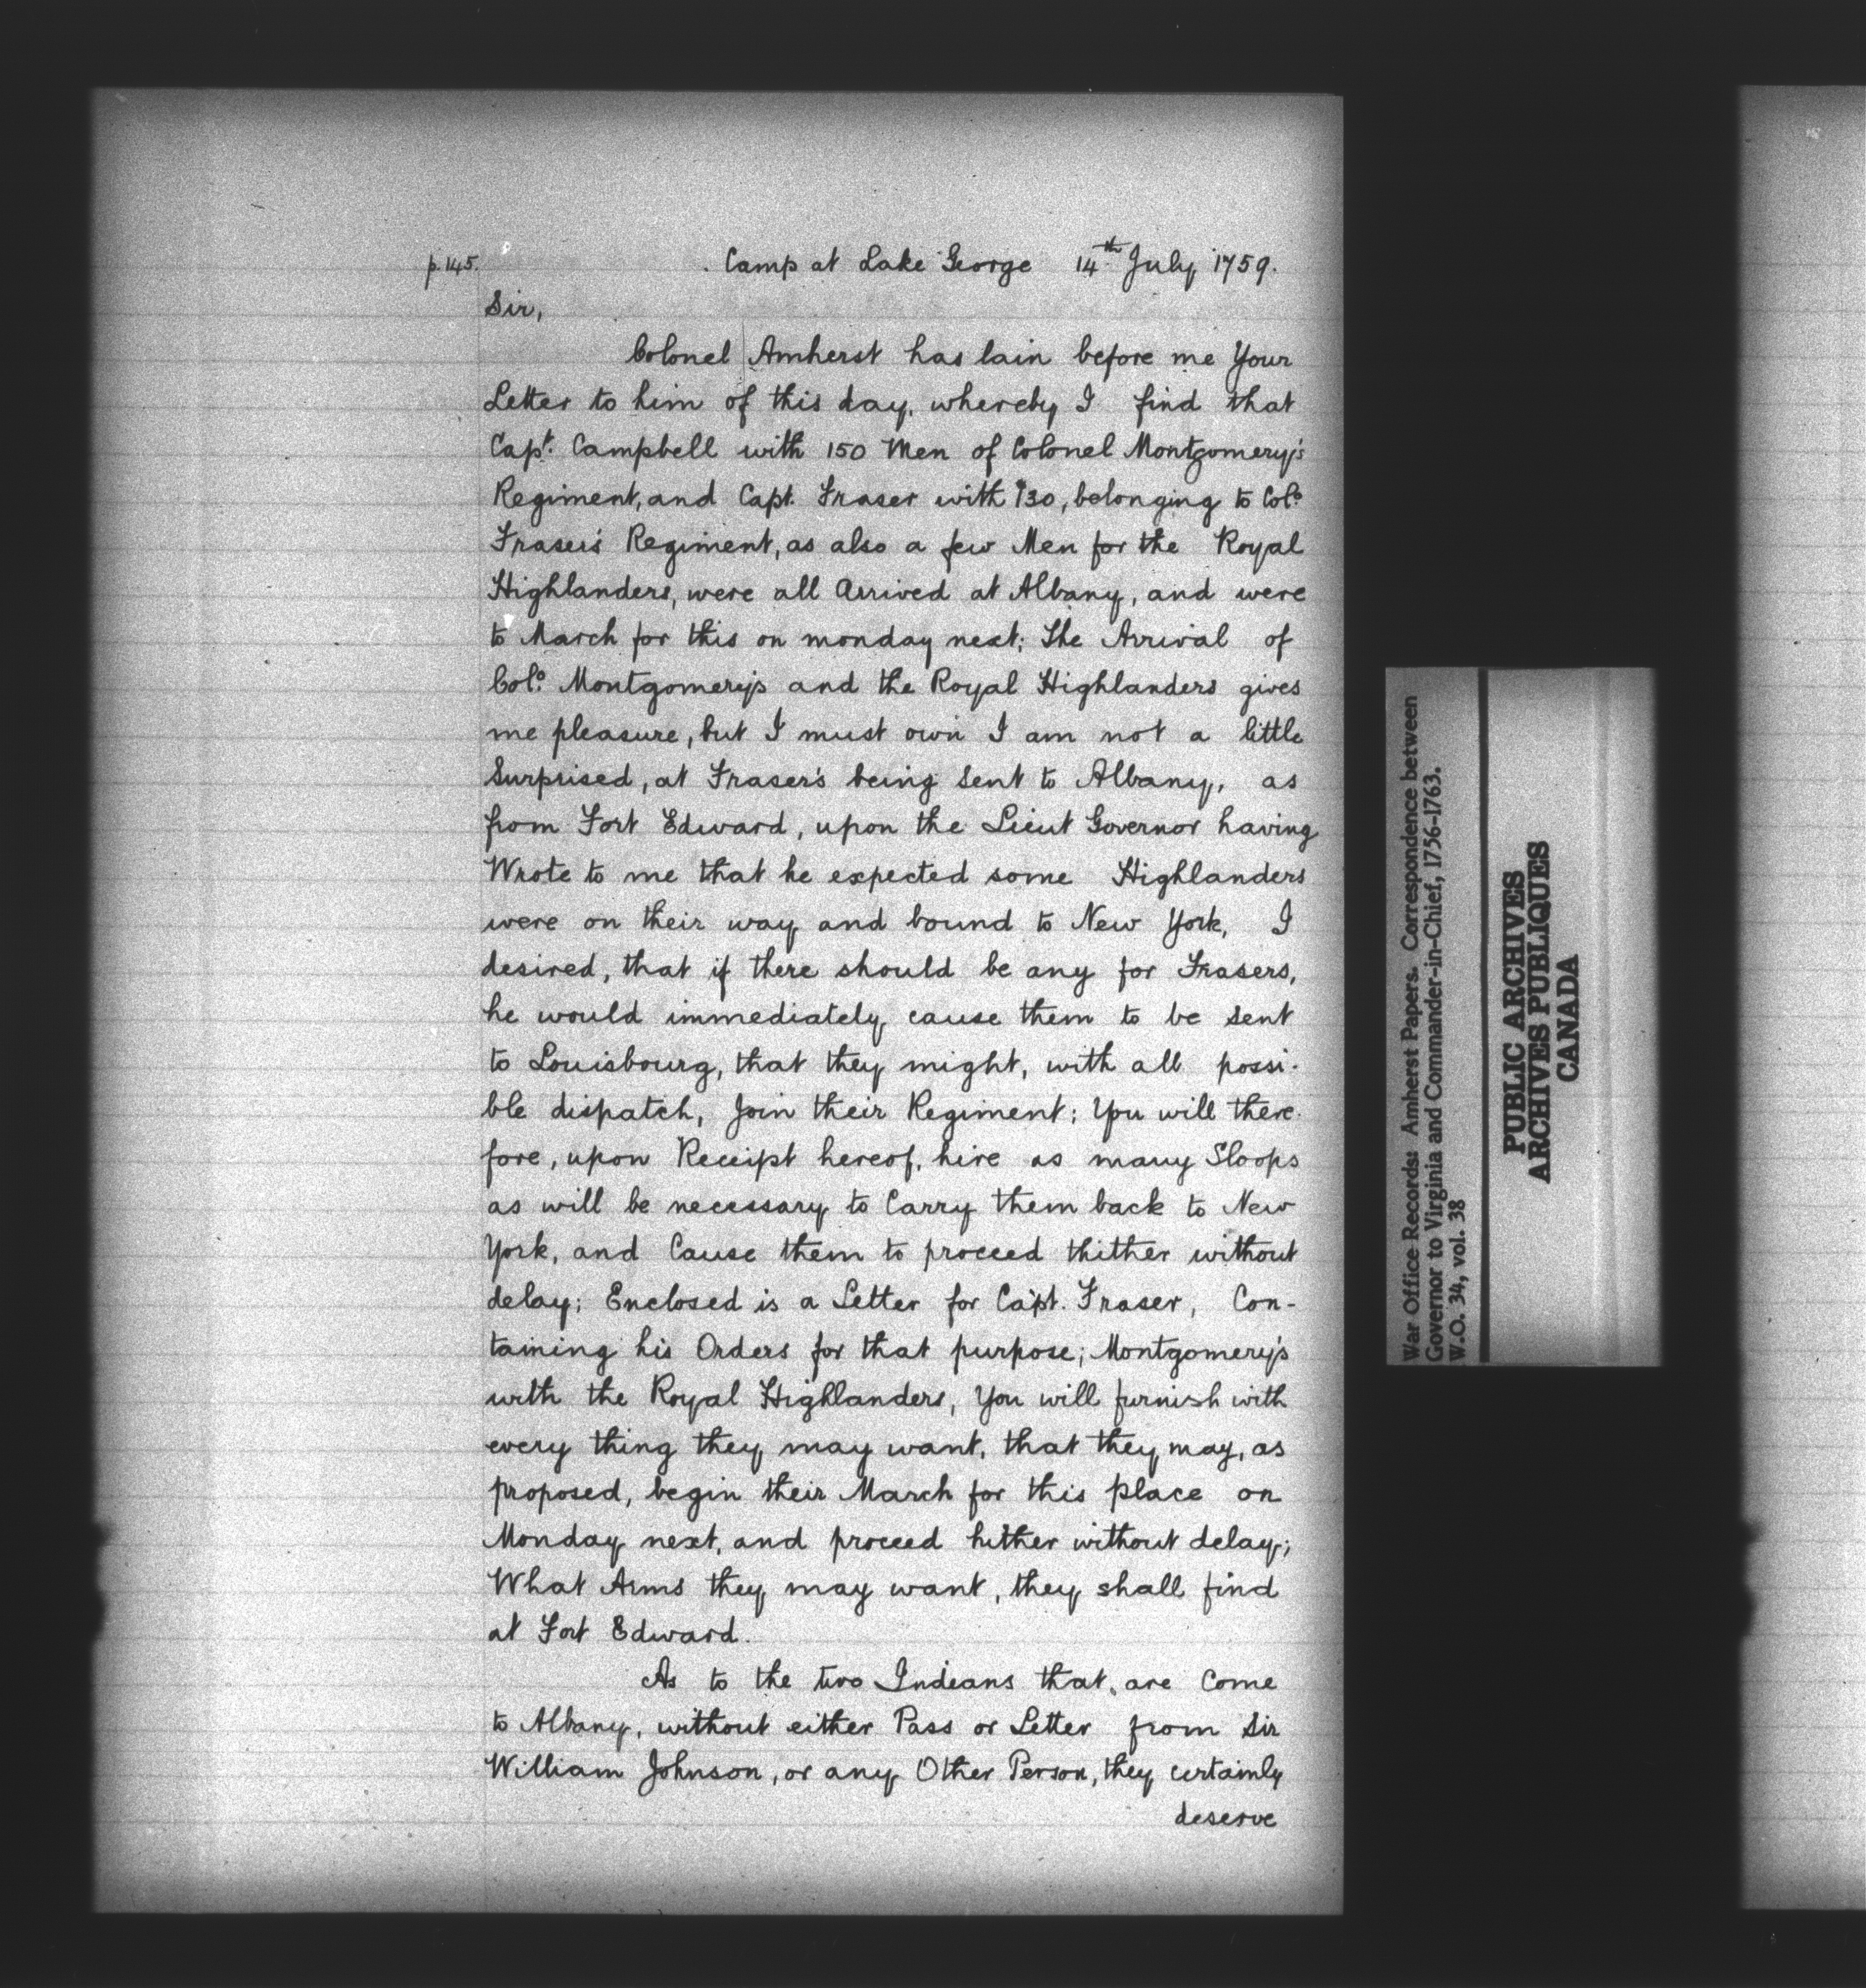 p. 145. Camp at Lake George 14th July 1759.
Sir,
Colonel Amherst has lain before me Your
Letter to him of this day, whereby I find that
Capt. Campbell with 150 Men of Colonel Montgomery's
Regiment, and Capt. Fraser with 130, belonging to Colo.
Fraser's Regiment, as also a few Men for the Royal
Highlanders, were all Arrived at Albany, and were
to March for this on monday next; The Arrival of
Colo. Montgomery's and the Royal Highlanders gives
me pleasure, but I must own I am not a little
Surprised, at Fraser's being Sent to Albany, as
from Fort Edward, upon the Lieut Governor having
Wrote to me that he expected some Highlanders
were on their way and bound to New York, I
desired, that if there should be any for Frasers,
he would immediately cause them to be sent
to Louisbourg, that they might, with all possi-
ble dispatch, Join their Regiment; You will there-
fore, upon Receipt hereof, hire as many Sloops
as will be necessary to Carry them back to New
York, and Cause them to proceed thither without
delay; Enclosed is a Letter for Capt. Fraser, Con-
taining his Orders for that purpose; Montgomery's
with the Royal Highlanders, You will furnish with
every thing they may want, that they may, as
proposed, begin their March for this place on
Monday next, and proceed hither without delay;
What Arms they may want, they shall find
at Fort Edward.
As to the two Indeans that are Come
to Albany, without either Pass or Letter from Sir
William Johnson, or any Other Person, they certainly
deserve
War Office Records: Amherst Papers. Correspondence between
Governor to Virginia and Commander-in-Chief, 1756-1763.
W.O. 34, vol. 38
PUBLIC ARCHIVES
ARCHIVES PUBLIQUES
CANADA